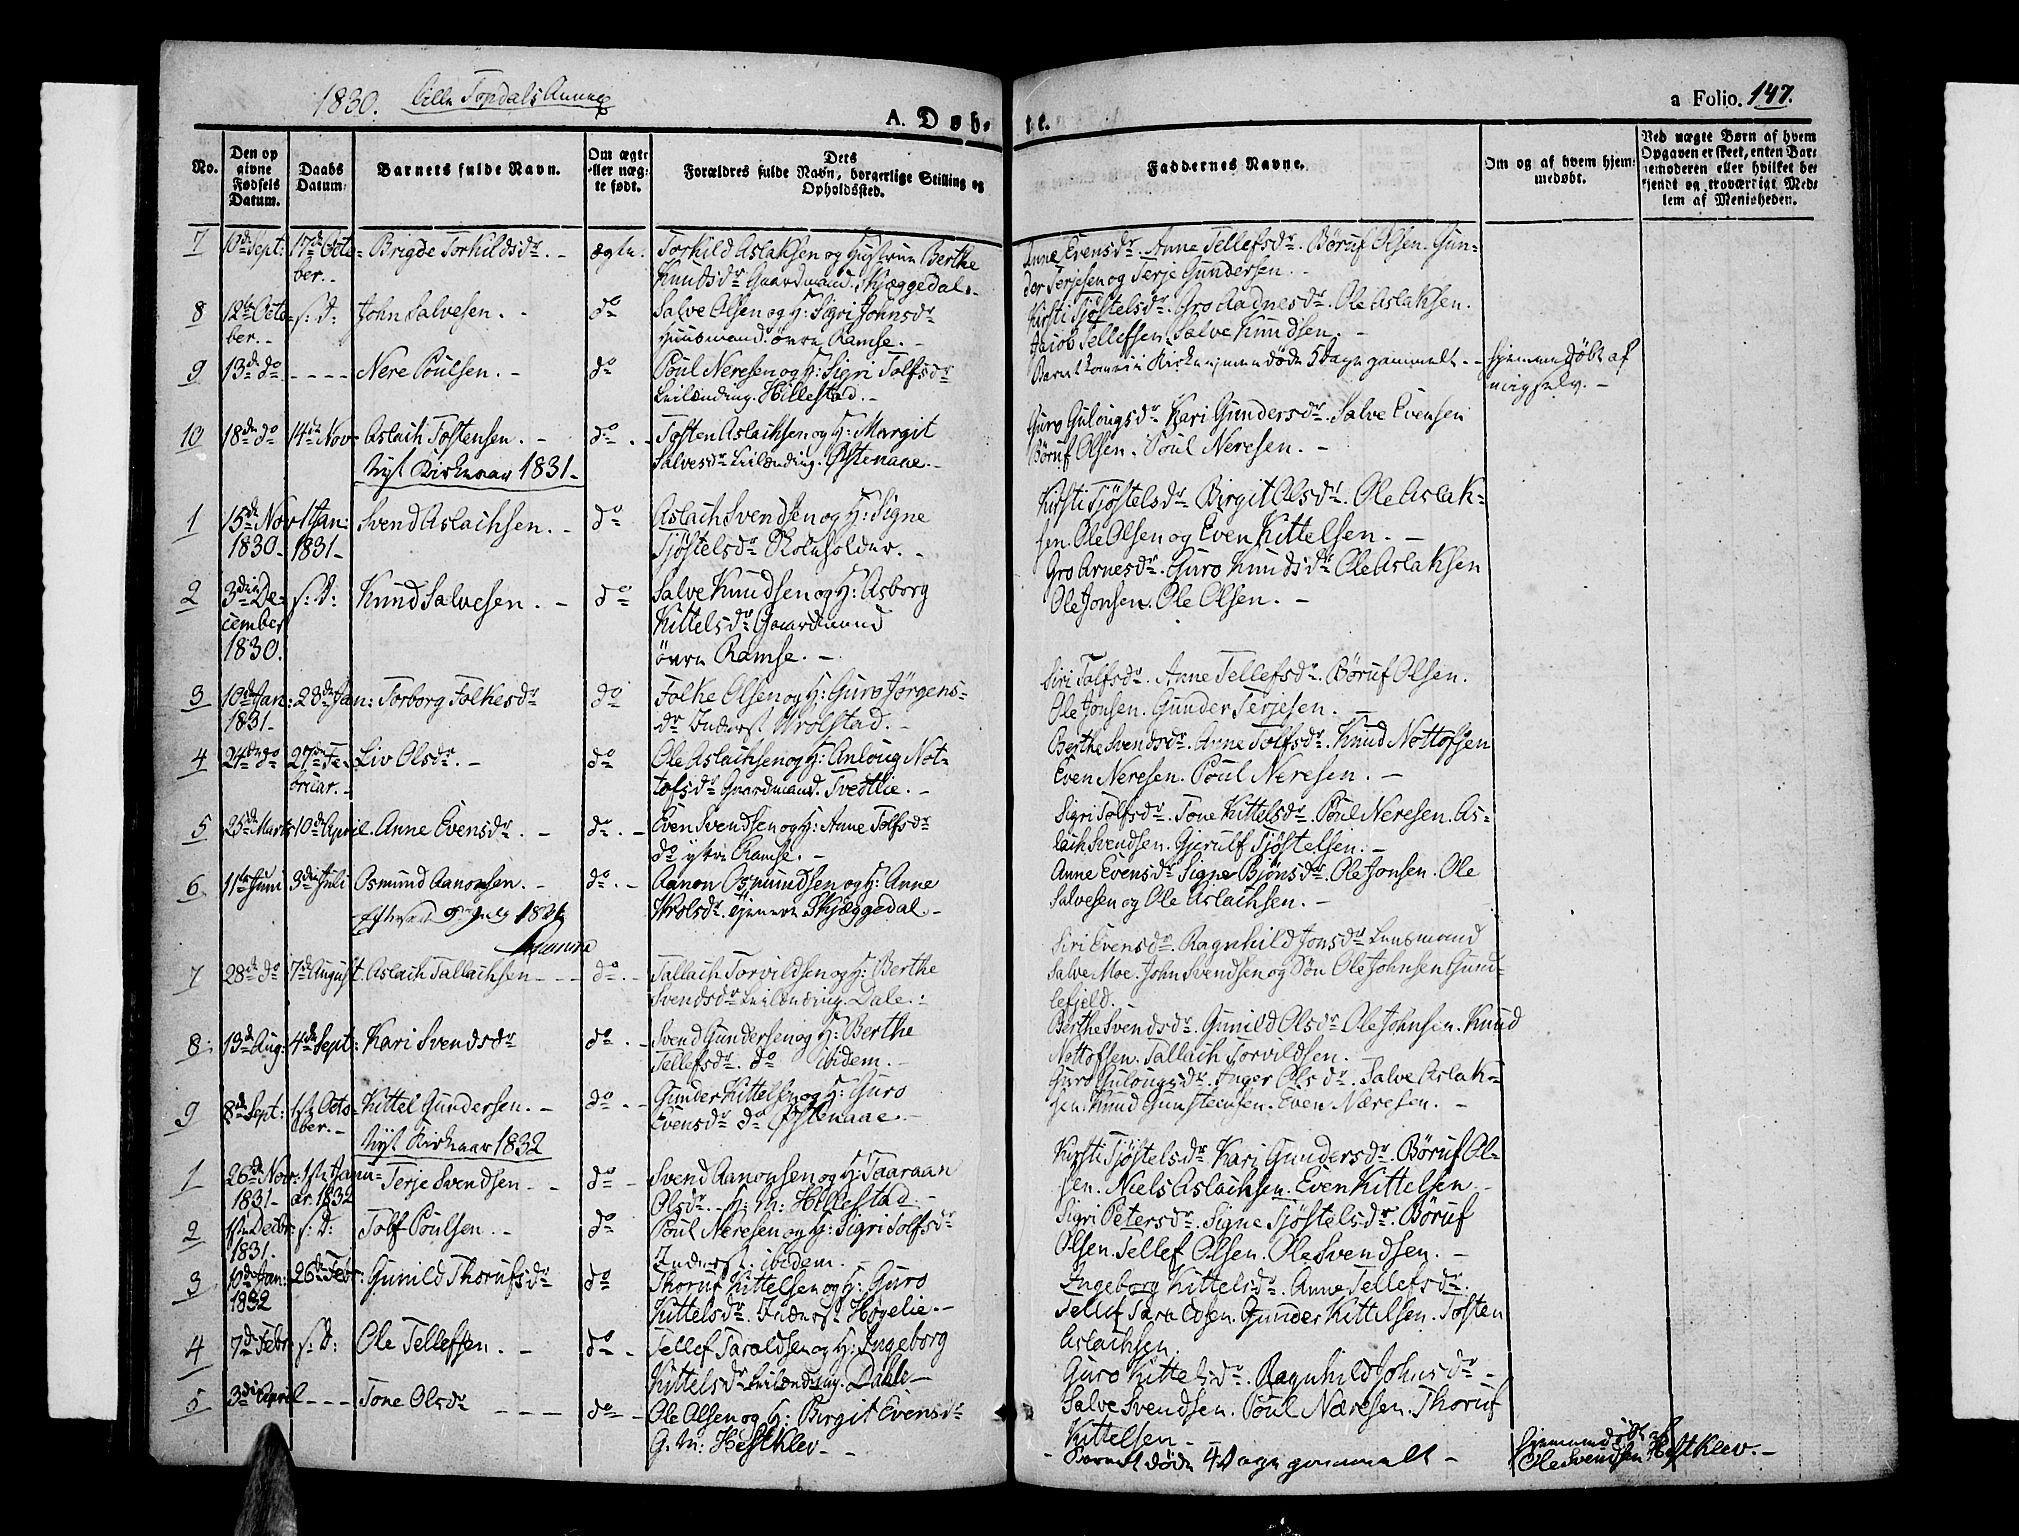 1830. Lille Topdals Annex
A. Døb-
te.
a Folio. 147.
No.
Den op
givne
Fødsels
Datum.
Daabs
Datum.
Barnets fulde Navn.
Om ægte
eller næg-
te født.
Dets
Forældres fulde Navn, borgerlige Stilling og
Opholdssted.
Faddernes Navne.
Om og af hvem hjem-
medøbt.
Ved uægte Børn af hvem
Opgaven er skeet, enten Bar-
nemoderen eller hvilket be-
kjendt og troværdigt Med-
lem af Menigheden.
7 10de Sept: 17de Octo- Brigde Torkildsdr. - ægte. Torkild Aslaksen og Hustrue Berthe
ber. - Knudsdr Gaardmand. Skjæggedal. -
Anne Evensdr. Anne Tellefsdr. Børuf Olsen. Gun-
der Terjesen og Terje Gundersen. -
8 12te Octo- s: D: John Salvesen. - do Salve Olsen og H: Sigri Johnsdr
ber. - Huusmand. øvre Ramse. -
Kirsti Tjøstelsdr. Gro Aadnesdr. Ole Aslaksen.
Jacob Tellefsen. Salve Knudsen. -
9 13de do - - - - Nere Poulsen. - do Poul Neresen og H: Sigri Tolfsdr
Leilænding. Hillestad. -
Barnet kom ei i Kirke, men døde 5 Dage gammelt. - Hjemmedøbt af
mig selv. -
10 18de do 14de Nov Aslach Tostensen. - do. - Tosten Aslachsen og H: Margit
Salvesdr Leilænding. Østenaae. -
Guro Gulougsdr. Kari Gundersdr. Salve Evensen
Børuf Olsen. Poul Neresen. -
Nyt Kirkeaar 1831 -
1 15de Nov 1 Jan: Svend Aslachsen. - do Aslach Svendsen og H: Signe
1830 - 1831 - Tjøstelsdr Skoleholder. -
Kirsti Tjøstelsdr Birgit Olsdr. Ole Aslak-
sen. Ole Olsen og Even Kittelsen. -
2 3die De- s: D: Knud Salvesen. - do Salve Knudsen og H: Asborg
cember Kittelsdr Gaardmand
1830. øvre Ramse. -
Gro Arnesdr. Guro Knudsdr Ole Aslaksen
Ole Jonsen. Ole Olsen. -
3 10de Jan: 23de Jan: Torborg Folkesdr do Folke Olsen og H: Guro Jørgens-
1831 - dr Inderst Wrolstad. -
Siri Tolfsdr. Anne Tellefsdr. Børuf Olsen.
Ole Jonsen. Gunder Terjesen. -
4 24de do 27de Fe- Liv Olsdr. - do Ole Aslachsen og H: Anloug Not-
bruar. - tofsdr Gaardmand. Tvedtlie. -
Berthe Svendsdr. Anne Tolfsdr. Knud Nottofsen
Even Neresen. Poul Neresen. -
5 25de Marts 10de April. Anne Evensdr. - do. - Even Svendsen og H: Anne Tolfsdr
do ytre Ramse. -
Sigri Tolfsdr. Tone Kittelsdr. Poul Neresen. As-
lach Svendsen. Gjerulf Tjøstelsen. -
6 11te Juni 3die Juli Osmund Aanonsen. - do. - Aanon Osmundsen og H: Anne
Wrolsdr. tjenere Skjæggedal -
Anne Evensdr Signe Bjønsdr. Ole Jonsen. Ole
Salvesen og Ole Aslachsen. -
Efterseet 9de July 1831
7 28de do 7de August. Aslach Tallachsen - - - do. - Tallach Torvildsen og H: Berthe
Svendsdr Leilænding. Dale. -
Siri Evensdr. Ragnhild Jonsdr Lensmand
Salve Moe. John Svendsen og Søn Ole Johnsen Gund-
lefjeld.
8 13de Aug: 4de Sept: Kari Svendsdr do. - Svend Gundersen og H: Berthe
Tellefsdr. do ibidem. -
Berthe Svendsdr. Gunild Olsdr Ole Johnsen. Knud
Nottofsen. Tallach Torvildsen.
9 8de Sept: 1ste Octo- Kittel Gundersen. - do. - Gunder Kittelsen og H: Guro
ber. - Evensdr do Østenaae. -
Guro Gulougsdr. Anger Olsdr. Salve Aslak-
sen. Knud Gunsteensen. Even Næresen. -
Nyt Kirkeaar 1832
1 26de Nov: 1ste Janu- Terje Svendsen - - do - Svend Aanonsen og H: Taaraan
1831 - ar 1832 Olsdr. H: M: Hillestad. -
Kirsti Tjøstelsdr Kari Gundersdr. Børuf Ol-
sen. Niels Aslachsen. Even Kittelsen -
2 1ste Decbr: s: D: Tolf Poulsen. - do Poul Neresen og H: Sigri Tolfsdr
1831. Inderst. ibidem. -
Sigri Petersdr. Signe Tjøstelsdr. Børuf
Olsen. Tellef Olsen. Ole Svendsen. -
3 10de Jan: 26de Febr: Gunild Thorufsdr do Thoruf Kittelsen og H: Guro
1832 Kittelsdr. Inderst Høgelie. -
Ingeborg Kittelsdr. Anne Tellefsdr.
Tellef Taraldsen. Gunder Kittelsen. Tosten
Aslachsen.
4 7de Febr: s: D: Ole Tellefsen. - do - Tellef Taraldsen og H: Ingeborg
Kittelsdr Leilænding. Dahle -
Guro Kittelsdr. Ragnhild Johnsdr -
Salve Svendsen. Poul Næresen. Thoruf
Kittelsen -
5 3die April - - - Tone Olsdr - - - do - Ole Olsen og H: Birgit Evensdr
G. M: Hestklev - -
- Barnet døde 4 Dage gammelt - Hjemmedøbt af
Ole Svendsen Hestklev. -